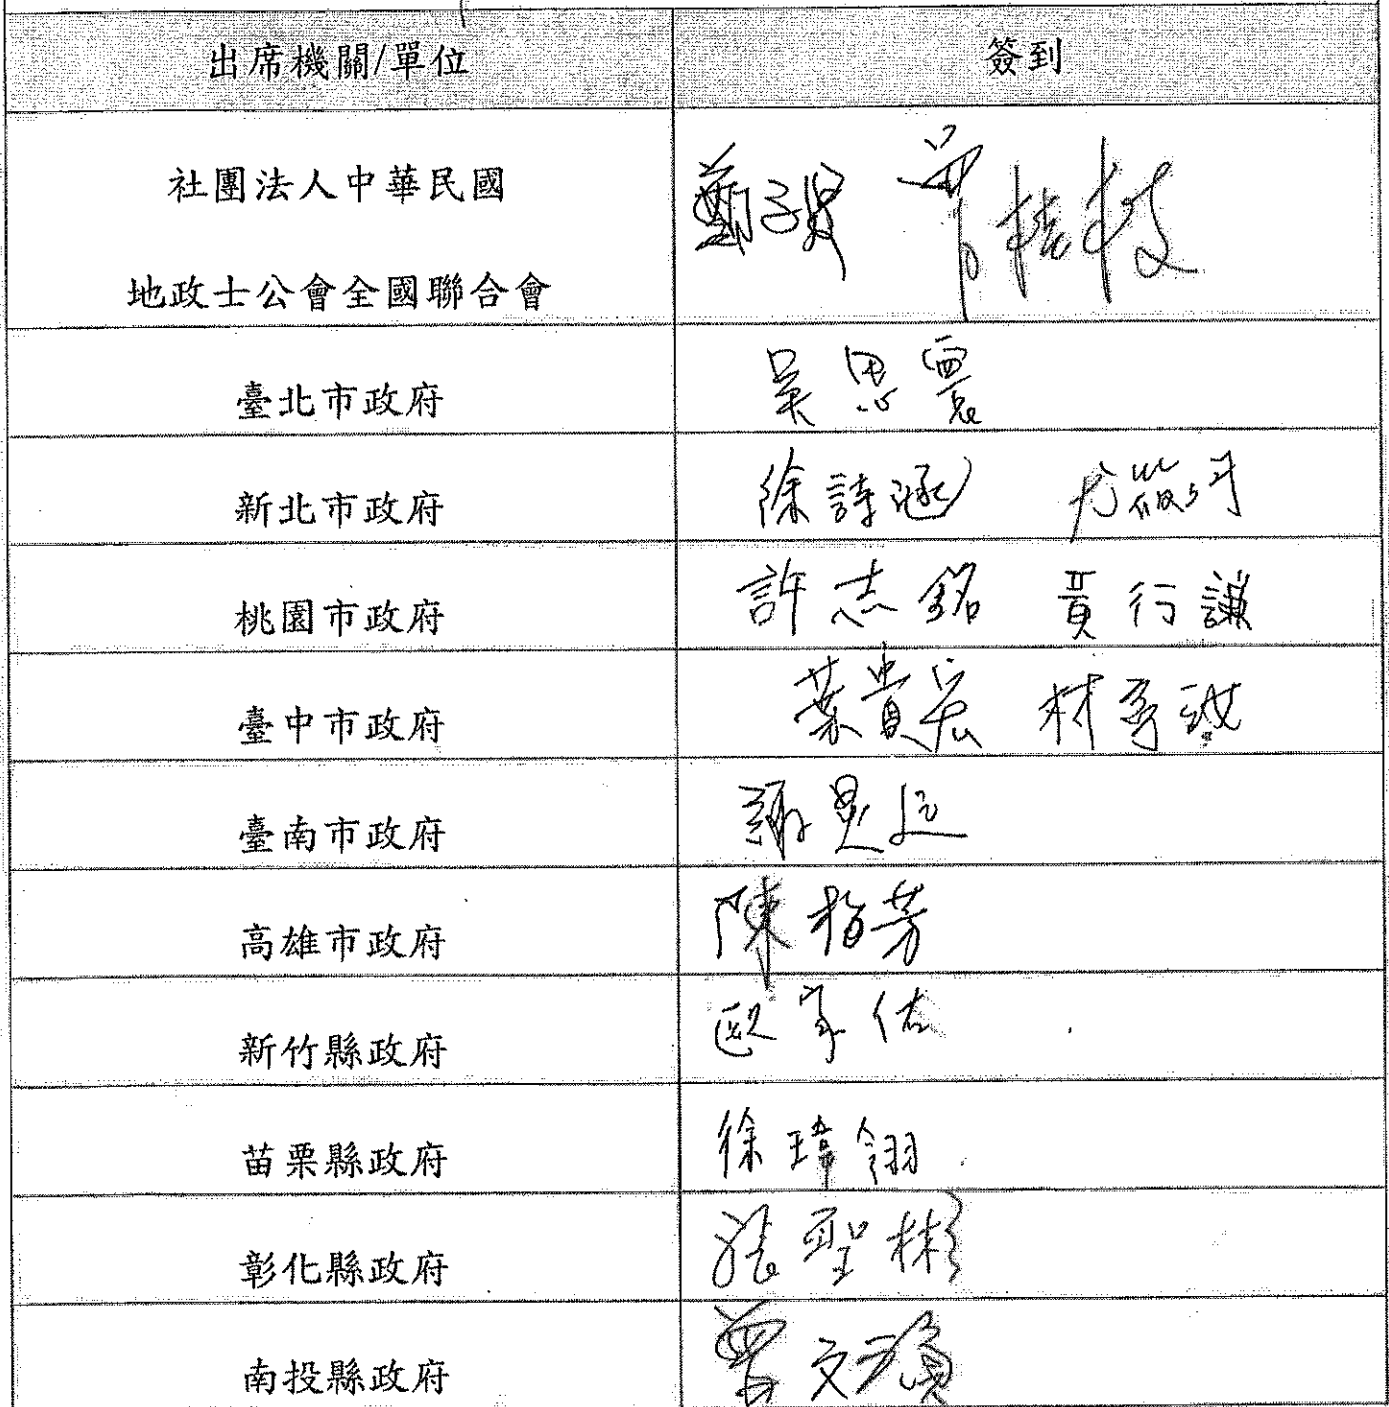 出席機關/單位 簽到
社團法人中華民國
地政士公會全國聯合會
臺北市政府 吳思
新北市政府 徐詩涵
桃園市政府 許志銘 黃行謙
臺中市政府 葉貴宏
臺南市政府 謝
高雄市政府 陳 芳
新竹縣政府 歐家佑
苗栗縣政府 徐瑋翎
彰化縣政府 張聖彬
南投縣政府 曾文